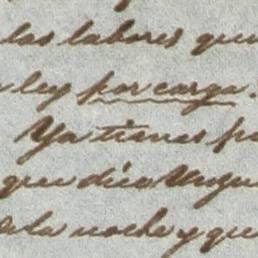 las labores que
ley por carga.
Ya tienes
que dice
de la noche y que